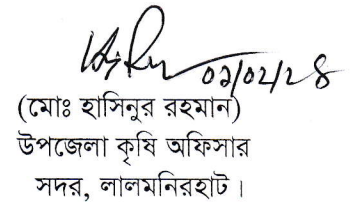 ০১/০২/২৪
(মোঃ হাসিনুর রহমান)
উপজেলা কৃষি অফিসার
সদর, লালমনিরহাট।